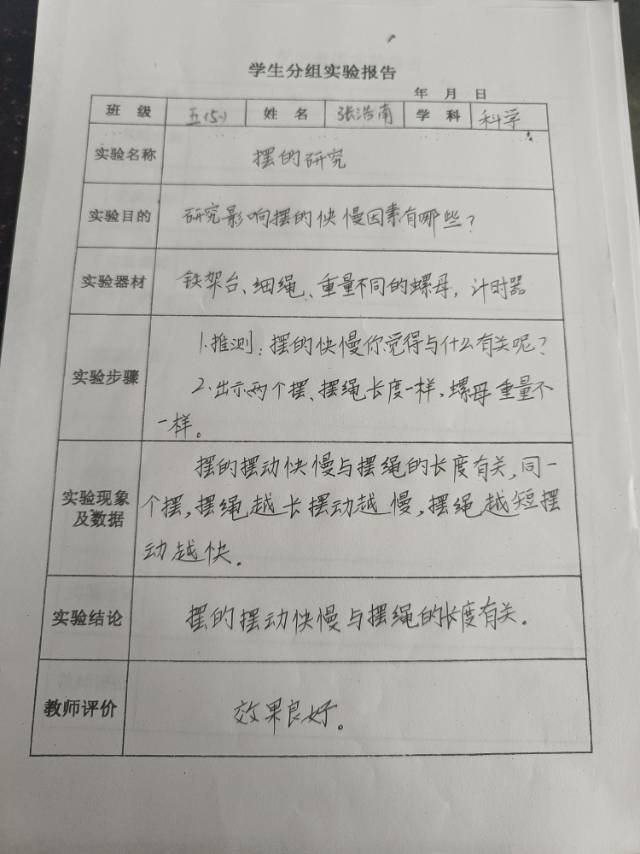 学生分组实验报告
年 月 日
班 级 五(5) 姓 名 张浩南 学 科 科学
实验名称 摆的研究
实验目的 研究影响摆的快慢因素有哪些?
实验器材 铁架台、细绳、重量不同的螺母,计时器
实验步骤
1.推测:摆的快慢你觉得与什么有关呢?
2.出示两个摆、摆绳长度一样,螺母重量不
一样。
实验现象
及数据
摆的摆动快慢与摆绳的长度有关,同一
个摆,摆绳越长摆动越慢,摆绳越短摆
动越快.
实验结论 摆的摆动快慢与摆绳的长度有关.
教师评价 效果良好。